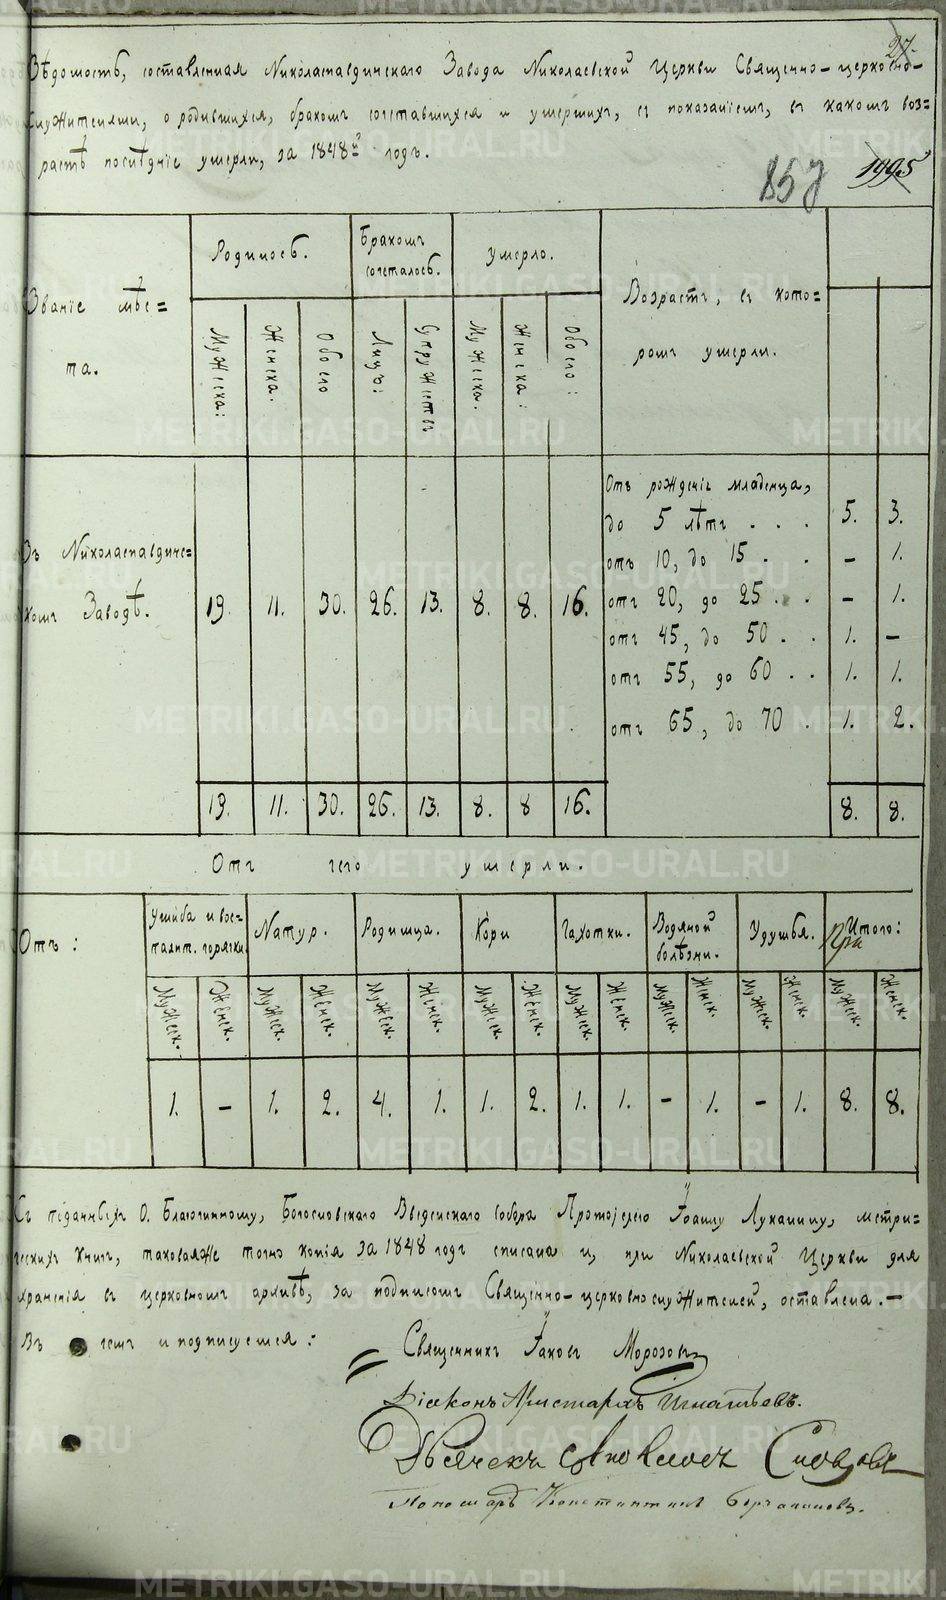 27.
Вѣдомость, составленная Николаепавдинскаго Завода Николаевской Церкви Священно-церковно-
служителями, о родившихся, бракомъ сочетавшихся и умершихъ, съ показаніемъ, въ какомъ воз=
растѣ послѣдніе умерли, за 1848й годъ.
857 1995
Званіе мѣс=
та.
Родилось.
Бракомъ
сочеталось.
Умерло.
Возрастъ, въ кото=
ромъ умерли.
Мужеска:
Женска.
Обоего
Лицъ:
Супружествъ
Мужеска.
Женска:
Обоего:
Въ Николаепавдинс=
комъ Заводѣ.
19. 11. 30. 26. 13. 8. 8. 16.
Отъ рожденіе младенца,
до 5 лѣтъ . . . 5. 3.
отъ 10, до 15 . . – 1.
отъ 20, до 25 . . – 1.
отъ 45, до 50 . . 1. –
отъ 55, до 60 . . 1. 1.
отъ 65, до 70 . 1. 2.
19. 11. 30. 26. 13. 8. 8 16. 8. 8.
Отъ чего умерли.
Отъ:
Ушиба и вос=
палит. горячки.
Натур.
Родимца.
Кори
Чахотки.
Водяной
болѣзни.
Удушья.
Итого:
Мужеск. Женск. Мужеск. Женск. Мужеск. Женск. Мужеск. Женск. Мужеск. Женск. Мужеск. Женск. Мужеск. Женск. Мужеск. Женск.
1. – 1. 2. 4. 1. 1. 2. 1. 1. – 1. – 1. 8. 8.
Съ поданныхъ О. Благочинному, Богословскаго Введенскаго собора Протоіерею Іоанну Луканину, метри=
ческихъ книгъ, таковая же точно копія за 1848 годъ списана и, при Николаевской Церкви для
храненія въ церковномъ архивѣ, за подписомъ Священно-церковнослужителей, оставлена.–
Въ чемъ и подписуемся:
Священникъ Іаковъ Морозовъ
Діаконъ Аристархъ Игнатьевъ.
Дьячекъ Словцовъ
Пономарь Константинъ
METRIKI.GASO-URAL.RU